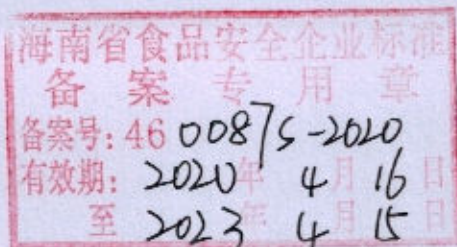 海南省食品安全企业标准
备案专用章
备案号:46 0087S-2020
有效期:2020年4月16日
至2023年4月15日